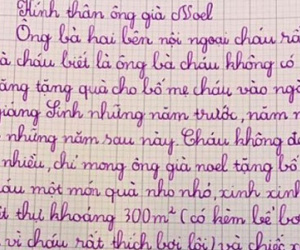 Kính thân ông già Noel
Ông bà hai bên nội ngoại cháu rấ
à cháu biết là ông bà cháu không có
ằng tặng quà cho bố mẹ cháu vào ngà
giáng Sinh những năm trước, năm n
những năm sau này. Cháu không đ
nhiều, chỉ mong ông già noel tặng bố
áu một món quà nho nhỏ, xinh xinh
t thự khoảng 300m² (có kèm bể bơ
vì cháu rất thích bơi lội) và chiếc